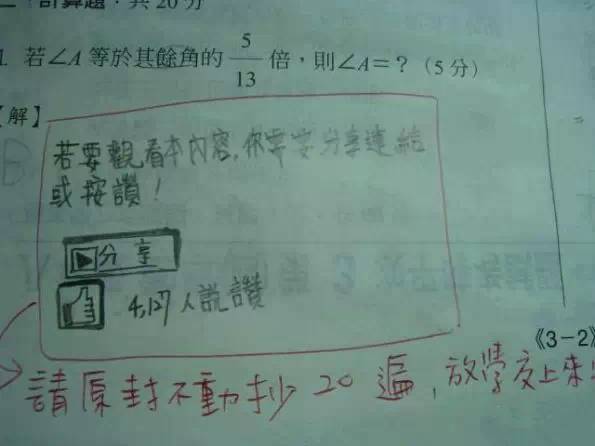 二、計算題：共 20 分
1. 若∠A 等於其餘角的 5/13 倍，則∠A=？（5 分）
【解】
若要觀看本內容，你需要分享連結
或按讚！
分享
4,127 人說讚
《3-2》
請原封不動抄 20 遍，放學交上來